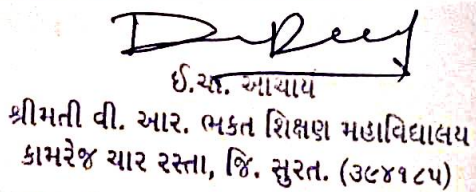 ઈ.ચા. આચાર્ય
શ્રીમતી વી. આર. ભકત શિક્ષણ મહાવિદ્યાલય
કામરેજ ચાર રસ્તા, જિ. સુરત. (૩૯૪૧૮૫)